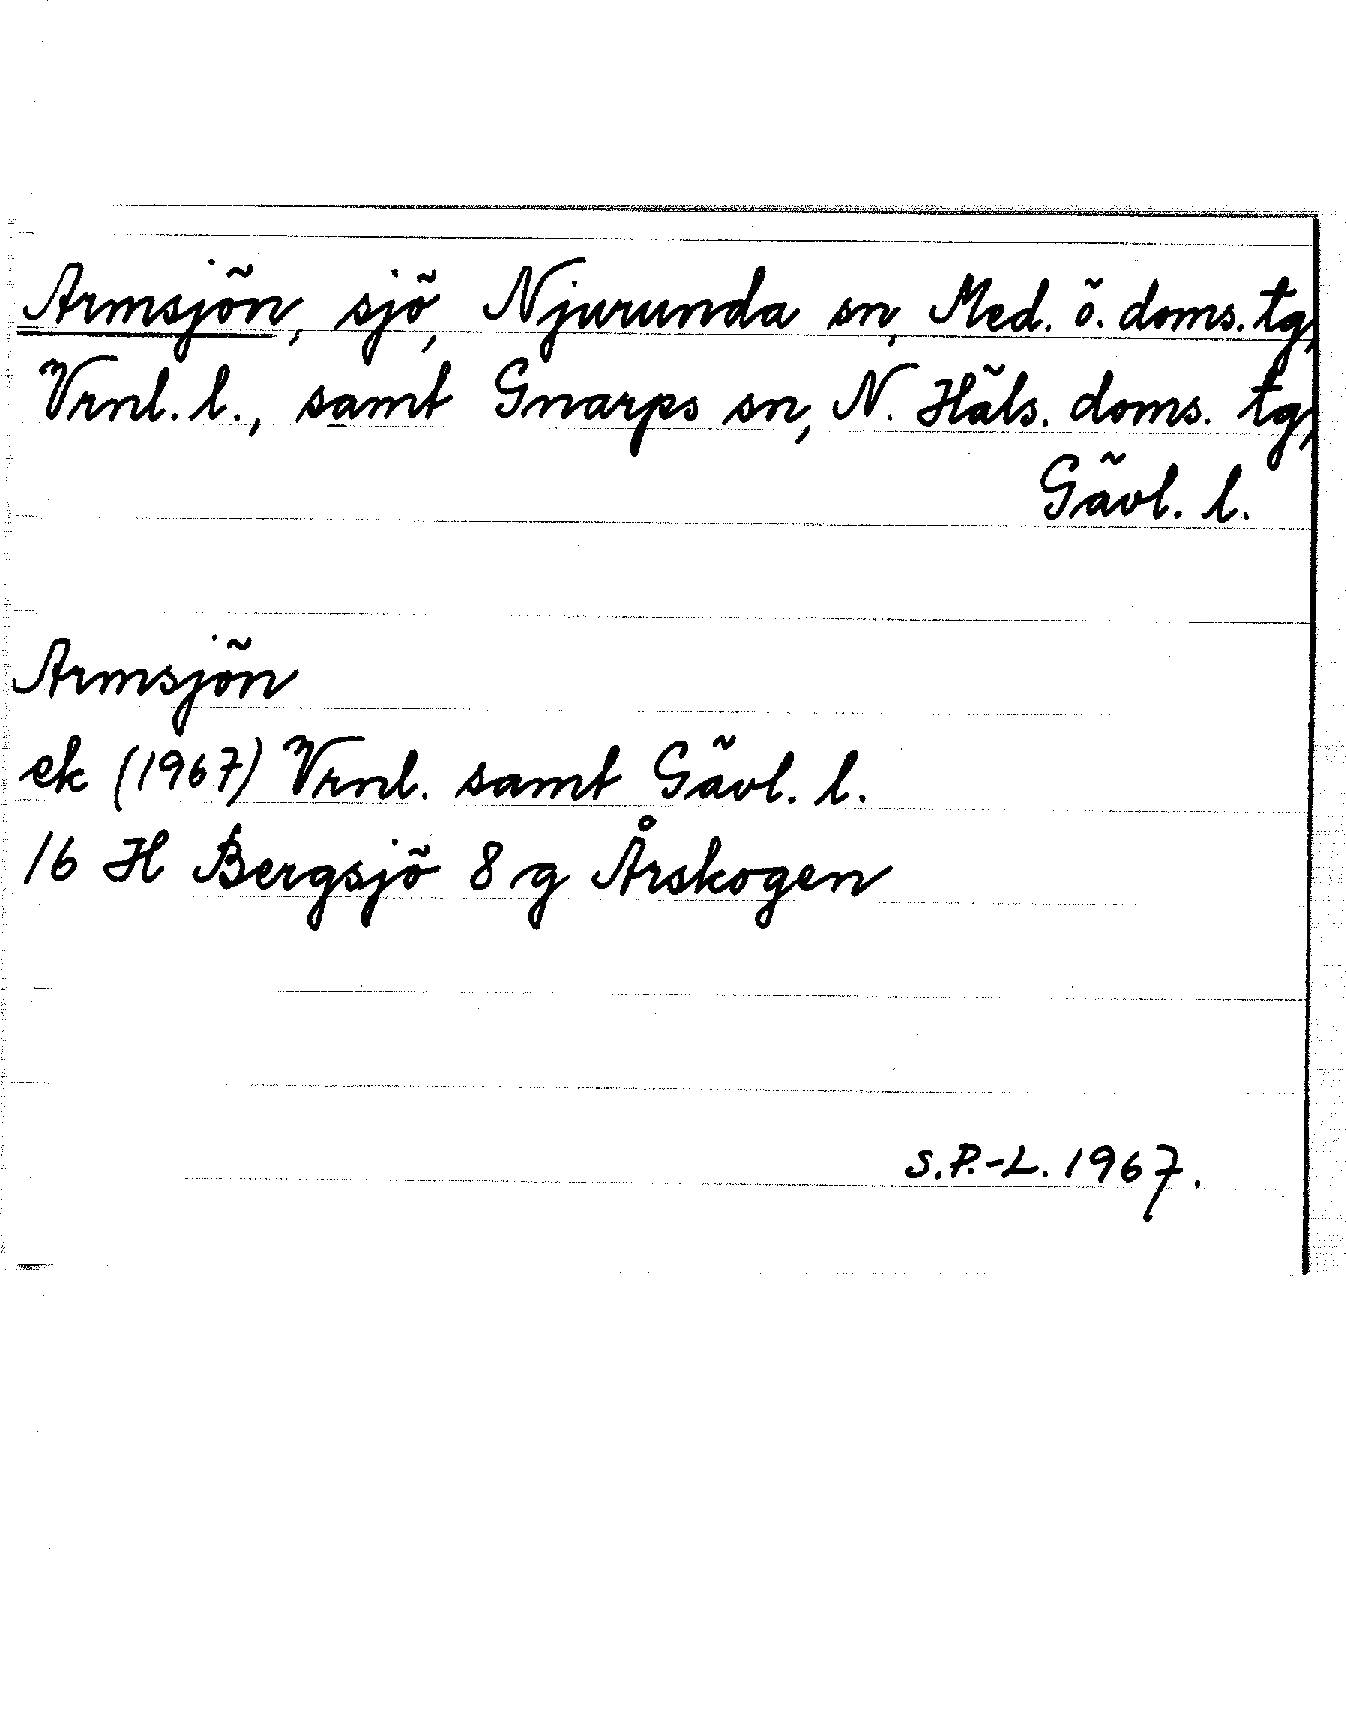 Armsjön, sjö, Njurunda sn, Med. ö. doms. tg,
Vrnl. l., samt Gnarps sn, N. Häls. doms. tg,
Gävl. l.
Armsjön
ek (1967) Vrnl. samt Gävl. l.
16 H Bergsjö 8 g Årskogen
S.P.-L. 1967.